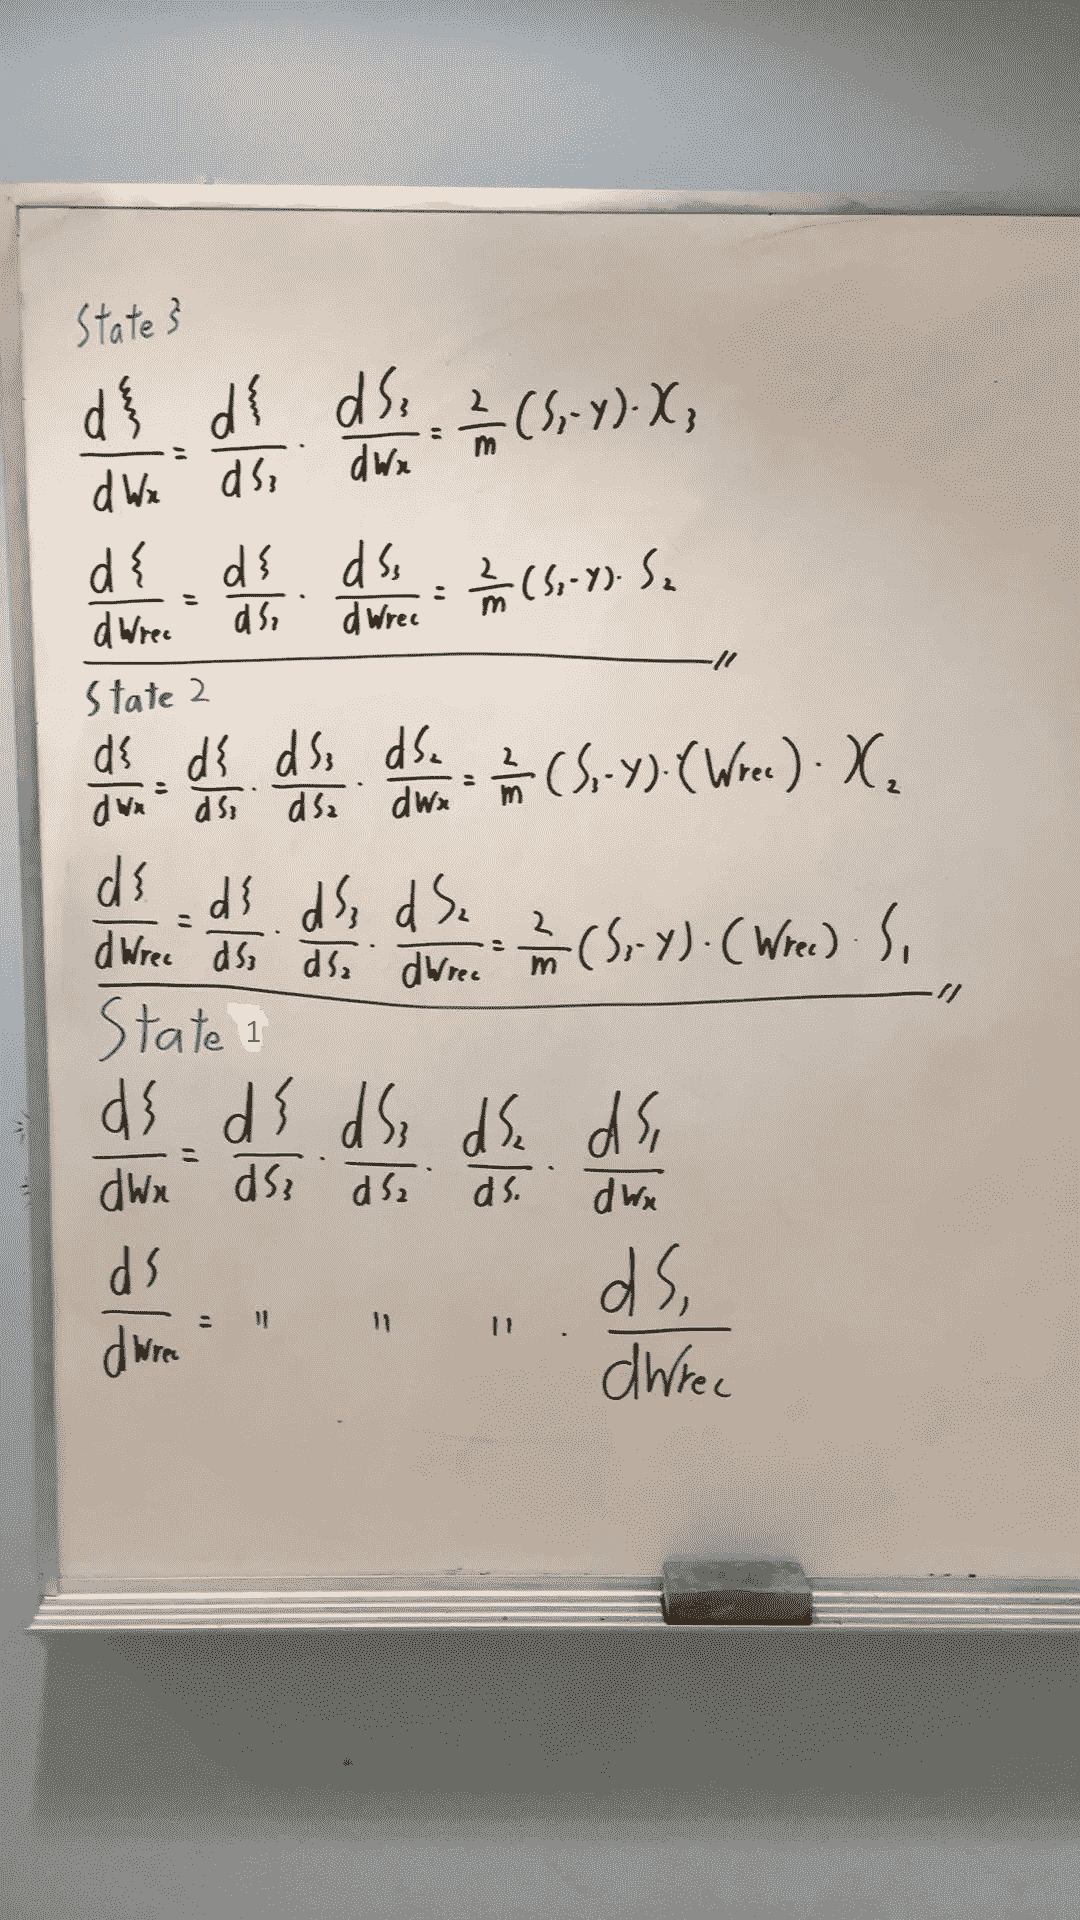 State 3
dξ/dWx = dξ/dS3 · dS3/dWx = 2/m (S3-Y)· X3
dξ/dWrec = dξ/dS3 · dS3/dWrec = 2/m (S3-Y)· S2
State 2
dξ/dWx = dξ/dS3 · dS3/dS2 · dS2/dWx = 2/m (S3-Y)·(Wrec)· X2
dξ/dWrec = dξ/dS3 · dS3/dS2 · dS2/dWrec = 2/m (S3-Y)·(Wrec)· S1
State 1
dξ/dWx = dξ/dS3 · dS3/dS2 · dS2/dS1 · dS1/dWx
dS/dWrec = " " " · dS1/dWrec